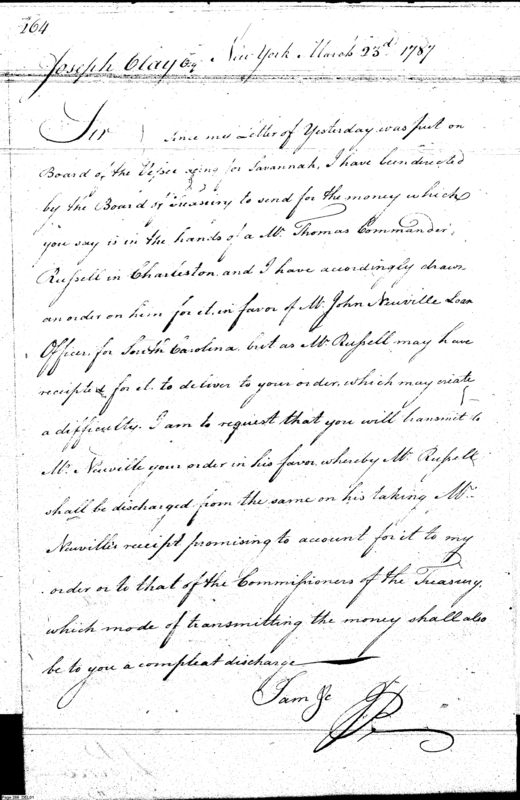 164
Joseph Clay Esq New York March 23d 1787
Sir Since my Letter of Yesterday was put on
Board of the Vessel going for Savannah, I have been directed
by the Board of Treasury to send for the money which
you say is in the hands of a Mr. Thomas Commander
Russell in Charleston and I have accordingly drawn
an order on him for it, in favor of Mr. John Neuville Loan
Officer for South Carolina, but as Mr. Russell may have
receipted for it to deliver to your order, which may create
a difficulty. I am to request that you will transmit to
Mr. Neuville your order in his favor whereby Mr. Russell
shall be discharged from the same on his taking Mr.
Neuville's receipt promising to account for it to my
order or to that of the Commissioners of the Treasury,
which mode of transmitting the money shall also
be to you a compleat discharge
I am &c